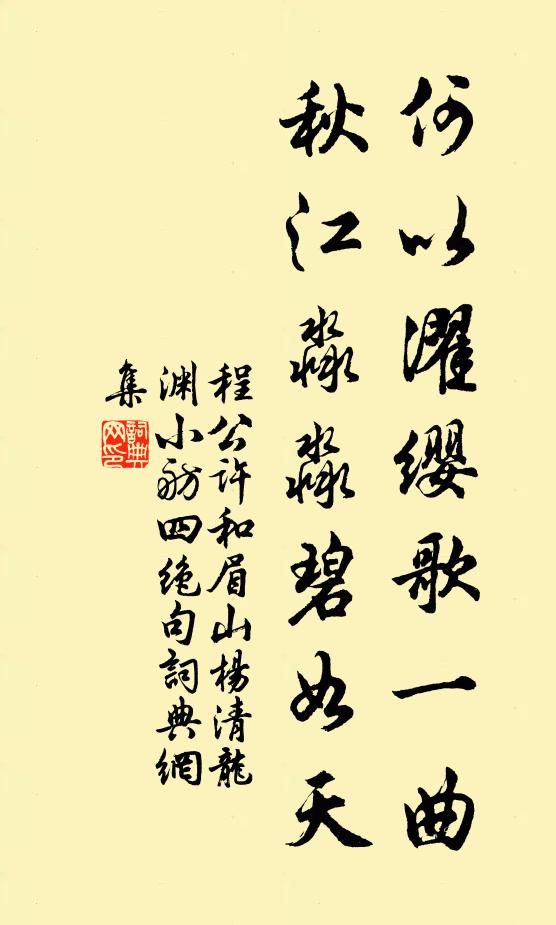 何以濯缨歌一曲
秋江淼淼碧如天
程公许和眉山楊清龍
渊小舫四绝句詞典網
集
詞典网印